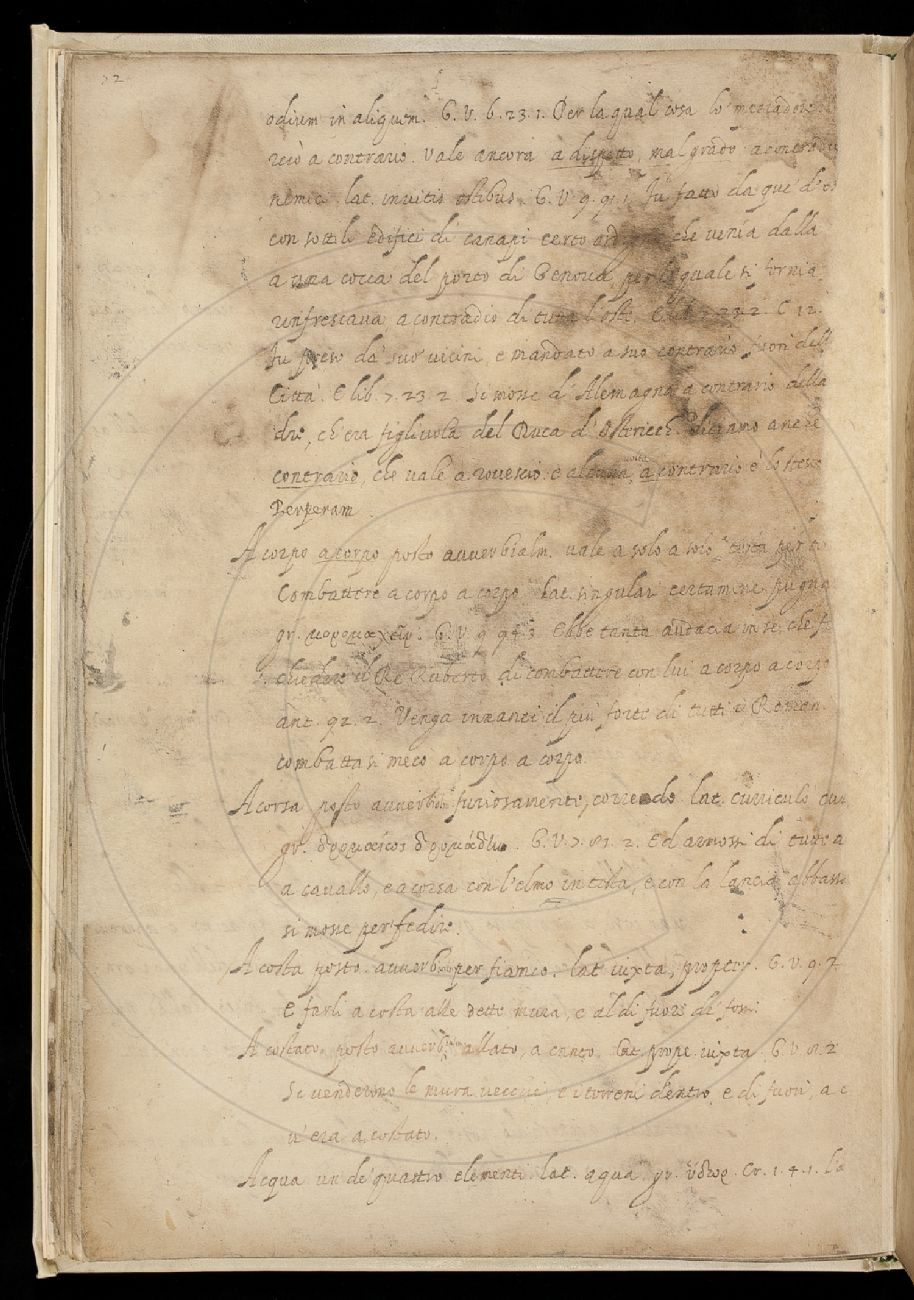 32
odium in aliquem. G. V. 6. 23. 1. Per la qual cosa lo
a contrario. Vale ancora a dispetto, malgrado
lat. invitis ostibus. G. V. 9. 91. 1. Fu fatto da que' d'
con sottili edifici di canapi certo che venia dalla
a una cocca del porto di Genova, per la quale si fornia
rinfrescava a contradio di tutta l'oste. E lib. 7. 23. 2. C 12.
Fu preso da suo' vicini e mandato a suo contrario fuori dell
Città. E lib. 7. 23. 2. Si mosse d'Alemagna a contrario della
dre, ch'era figliuola del Duca d'Ostericch. diciamo anche
contrario, che vale a rovescio e alcuna volta a contrario è lo stesso
Perperam
A corpo a corpo posto avverbialm. vale a solo a solo
Combattere a corpo a corpo lat. singulari certamine pugna
gr. μονομαχεῖν. G. V. 9. 94. 3. Ebbe tanta audacia in se, che f
chiedere il Re Ruberto di combattere con lui a corpo a corpo
ant. 92. 2. Venga innanzi il più forte di tutti i Roman
combattasi meco a corpo a corpo
A corsa posto avverbial. furiosamente, correndo lat. curriculo cur
gr. δρομαίως δρομάδην. G. V. 7. 81. 2. Ed armossi di tutte a
a cavallo, e a corsa con l'elmo in testa, e con la lancia abbass
si mosse per fedire.
A costa posto avverbial. per fianco. lat. iuxta, propter. G. V. 9. 7
E farli a costa alle dette mura, e al di fuori di fossi
A costato posto avverbial. allato, a canto. lat. prope iuxta G. V. 8. 2
Si venderono le mura vecchie, e i terreni dentro, e di fuori, a c
v'era a costato.
Acqua un de' quattro elementi lat. aqua gr. ὕδωρ. Cr. 1. 4. 1. L'a